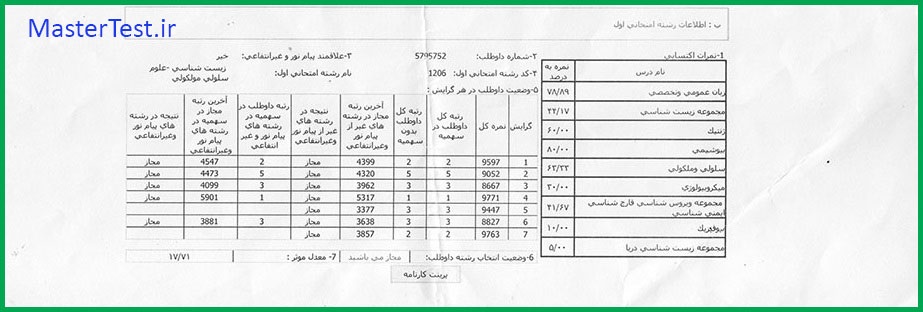 MasterTest.ir
ب : اطلاعات رشته امتحاني اول
1-نمرات اكتسابي
نام درس نمره به درصد
زبان عمومي وتخصصي ۷۸/۸۹
مجموعه زيست شناسي ۴۴/۱۷
ژنتيك ۶۰/۰۰
بيوشيمي ۸۰/۰۰
سلولي وملكولي ۶۳/۳۳
ميكروبيولوژي ۳۰/۰۰
مجموعه ويروس شناسي قارچ شناسي ايمني شناسي ۴۱/۶۷
بيوفيزيك ۱۰/۰۰
مجموعه زيست شناسي دريا ۵/۰۰
۲-شماره داوطلب: 5795752
۳-علاقمند پيام نور و غيرانتفاعي: خير
۴-كد رشته امتحاني اول: 1206
نام رشته امتحاني اول: زيست شناسي -علوم سلولي مولكولي
۵-وضعيت داوطلب در هر گرايش :
گرايش نمره كل رتبه كل داوطلب در سهميه رتبه كل بدون سهميه آخرين رتبه مجاز در رشته هاي غير از پيام نور نتيجه در رشته هاي غير از پيام نور رتبه داوطلب در سهميه در رشته هاي پيام نور و غير انتفاعي آخرين رتبه مجاز در سهميه رشته هاي پيام نور وغيرانتفاعي نتيجه در رشته هاي پيام نور وغيرانتفاعي
1 9597 2 2 4399 مجاز 2 4547 مجاز
2 9052 5 5 4320 مجاز 5 4473 مجاز
3 8667 3 3 3962 مجاز 3 4099 مجاز
4 9771 1 1 5317 مجاز 1 5901 مجاز
5 9447 3 3 3377 مجاز
6 8827 3 3 3638 مجاز 3 3881 مجاز
7 9763 2 2 3857 مجاز
6-وضعيت انتخاب رشته داوطلب: مجاز مي باشيد
7- معدل موثر : ۱۷/۷۱
پرينت كارنامه